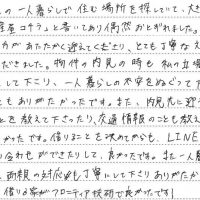 の一人暮らしで住む場所を探していて、大
屋コチラ」と書いてあり偶然おとずれました。
方があたたかく迎えてくださり、とても丁寧な
だきました。物件の内見の時も私の立場
して下さり、一人暮らしの不安をぬぐって
もありがたかったです。また、内見先に迎
とを教えて下さったり、交通情報のことも教え
かったです。借りることを決めてからも、LINE
い合わせができたりして、良かったです。また一人暮
面格の対応も丁寧にして下さりありがたか
借りる家がフロンティア技研で良かったです!